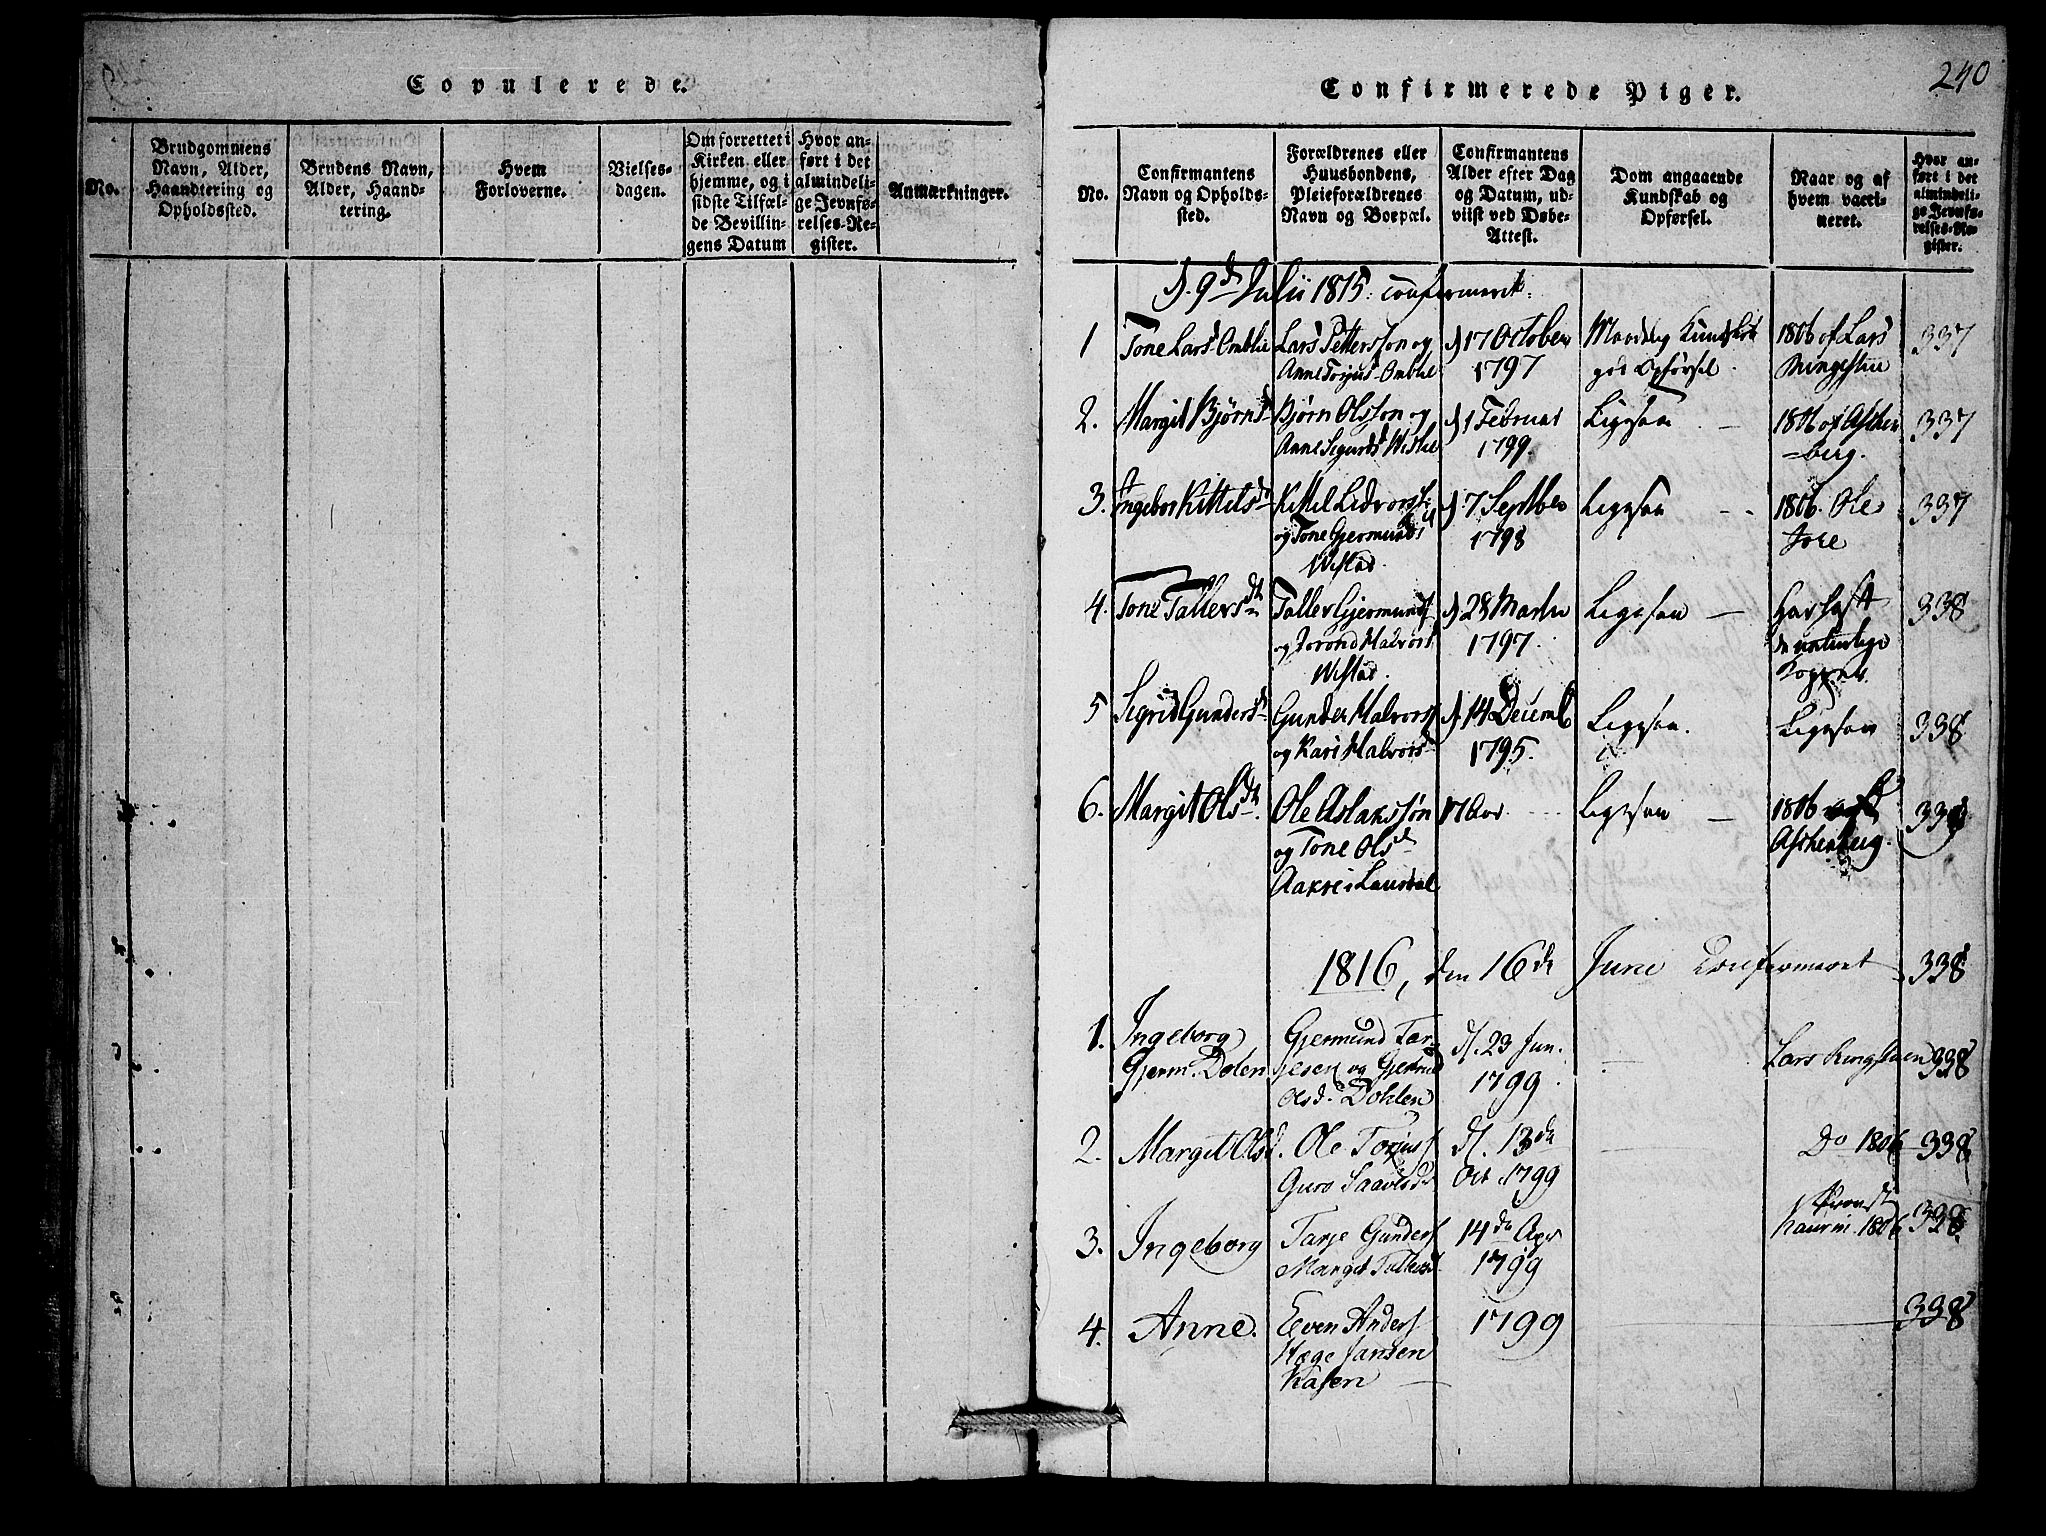 Copulerede.
No.
Brudgommens
Navn, Alder,
Haandtering og
Opholdssted.
Brudens Navn,
Alder, Haand-
tering.
Hvem
Forloverne.
Vielses-
dagen.
Om forrettet i
Kirken eller
hjemme, og i
sidste Tilfæl-
de Bevillin-
gens Datum
Hvor an-
ført i det
almindeli-
ge Jevnfø-
relses-Re-
gister.
Anmærkninger.
240
Confirmerede Piger.
No.
Confirmantens
Navn og Opholds-
sted.
Forældrenes eller
Huusbondens,
Pleieforældrenes
Navn og Boepæl.
Confirmantens
Alder efter Dag
og Datum, ud-
viist ved Døbe-
Attest.
Dom angaaende
Kundskab og
Opførsel.
Naar og af
hvem vacci-
neret.
Hvor an-
ført i det
almindeli-
ge Jevnfø-
relses-Re-
gister.
d. 9de Julii 1815. confirmeret.
1
Tone Larsd Omblie
Lars Pettersson og
Anne Torjusd Omblie
d 17 October
1797
Maadelig Kundskab
god Opførsel.
1806 af Lars
Ringsteen
337
2.
Margit Bjørnsd
Bjørn Olsson og
Anne Sigurdsd
d 1 Februar
1799.
Ligesaa
1806 af Aschen
=berg.
337
3.
Ingebor Kittelsd
Kittel Lidvors
og Tone Gjermunds
Wistad
d 7 Septber
1798
Ligesaa
1806. Ole
Jore
337
4.
Tone Tallersdtr
Taller Gjermunds
og Jorond Halvors
Wistad.
d 28 Martii
1797.
Ligesaa
Har haft
de naturlige
Kopper.
338
5
Sigrid Gundersd
Gunder Halvors
og Kari Halvorsd
d. 14 Decemb
1795.
Ligesaa.
Ligesaa
338
6.
Margit Olsdtr.
Ole Aslaksson
og Tone Olsd
Aakre i Laurdal
17 Aar
Ligesaa
1806 af
Aschenberg.
338
1816, den 16de June Confirmeret
338
1.
Ingeborg
Gjerm. Dolen
Gjermund Tar-
jesen og Gjertrud
Olsd. Dohlen
d. 23 Jun.
1799
Lars Ringsteen
338
2.
Margit Olsd.
Ole Torjus
Guro Saavesd
d. 13de
Oct. 1799
Do 1806
338
3.
Ingeborg
Tarje Gunders
Margit Tallevsd
14de Apr
1799
Provst
Kaurin. 1806
338
4.
Anne.
Even Anders
Hæge Jansen
Kaasen
1799
338